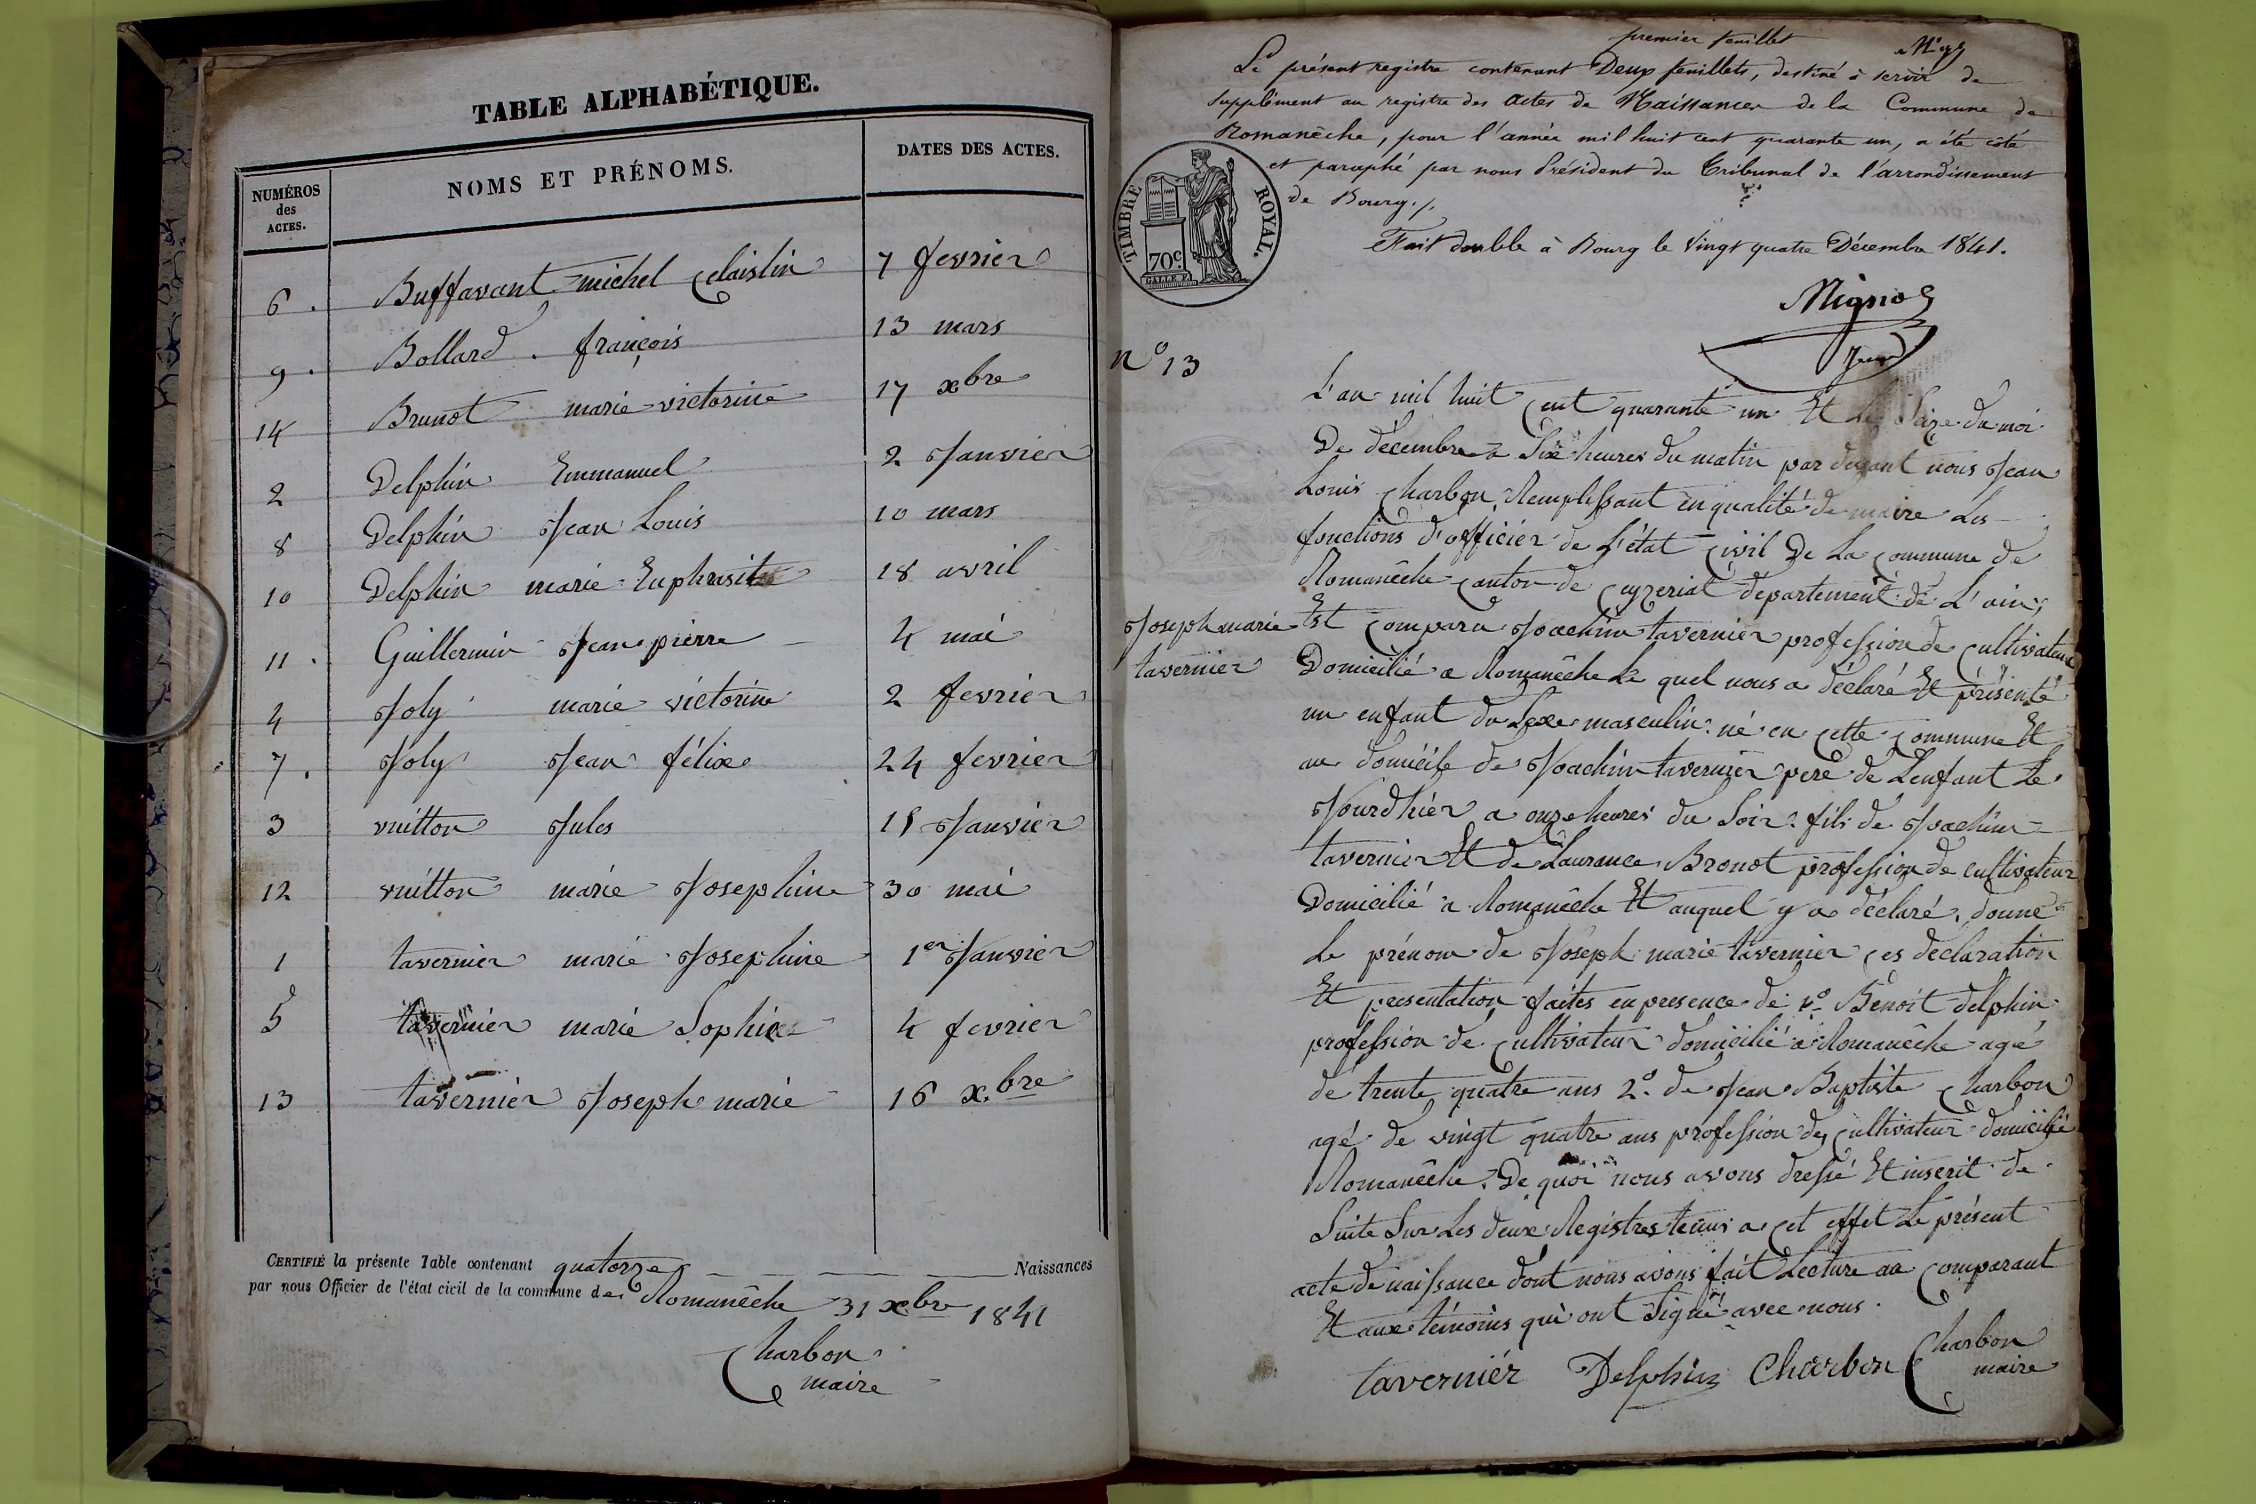 TABLE ALPHABÉTIQUE.
NUMÉROS des ACTES. NOMS ET PRÉNOMS. DATES DES ACTES.
6. Buffavant michel 7 fevrier
9. Bollard. françois 13 mars
14 Brunot marie victorine 17 xbre
2 Delphin Emmanuel 2 Janvier
8 Delphin Jean Louis 10 mars
10 Delphin marie Euphrasie 18 avril
11. Guillermin Jean pierre 4 mai
4 Joly marie victorine 2 fevrier
7. Joly Jean félix 24 fevrier
3 vuitton Jules 15 Janvier
12 vuitton marie Josephine 30 mai
1 tavernier marie Josephine 1er Janvier
5 tavernier marie Sophie 4 fevrier
13 tavernier Joseph marie 16 xbre
CERTIFIÉ la présente Table contenant quatorze Naissances
par nous Officier de l'état cicil de la commune de Romanêche 31 xbre 1841
Charbon
maire
premier feuillet
Le présent registre contenant Deux feuillets, destiné à servir de
supplément au registre des actes de Naissances de la Commune de
Romanêche, pour l'année mil huit cent quarante un, a été côté
et paraphé par nous Président du Tribunal de l'arrondissement
de Bourg./.
TIMBRE ROYAL.
70c.
Fait double à Bourg le Vingt quatre Décembre 1841.
n° 13
L'an mil huit cent quarante un Et le Seize du moi
De décembre a Six heures du matin par devant nous Jean
Louis Charbon Remplissant en qualité de maire Les
fonctions d'officier de L'état Civil De La Commune de
Romanêche Canton de Ceyzeriat département de L'ain,
Joseph marie
tavernier
Est Comparu Joachim tavernier profession de Cultivateur
Domicilié a Romanêche Le quel nous a déclaré Et présenté
un enfant du Sexe masculin né en Cette Commune Et
au domicile de Joachim tavernier pere de L'enfant Le
Jourd'hier a onze heures du Soir fils de Joachim
tavernier Et de Laurance Bronot profession de cultivateur
Domicilié a Romanêche Et auquel y a déclaré donné
Le prénom de Joseph marie tavernier Ces declaration
Et presentation faites en presence de 1° Benoit delphin
profession de Cultivateur domicilié a Romanêche agé
de trente quatre ans 2° de Jean Baptiste Charbon
agé de vingt quatre ans profession de Cultivateur domicilié
Romanêche. De quoi nous avons dressé Et inscrit de
Suite Sur Les deux Registres tenus a Cet effet Le présent
acte de naissance dont nous avons fait Lecture au Comparant
Et aux témoins qui ont Signé avec nous.
tavernier Delphin Charbon Charbon
maire